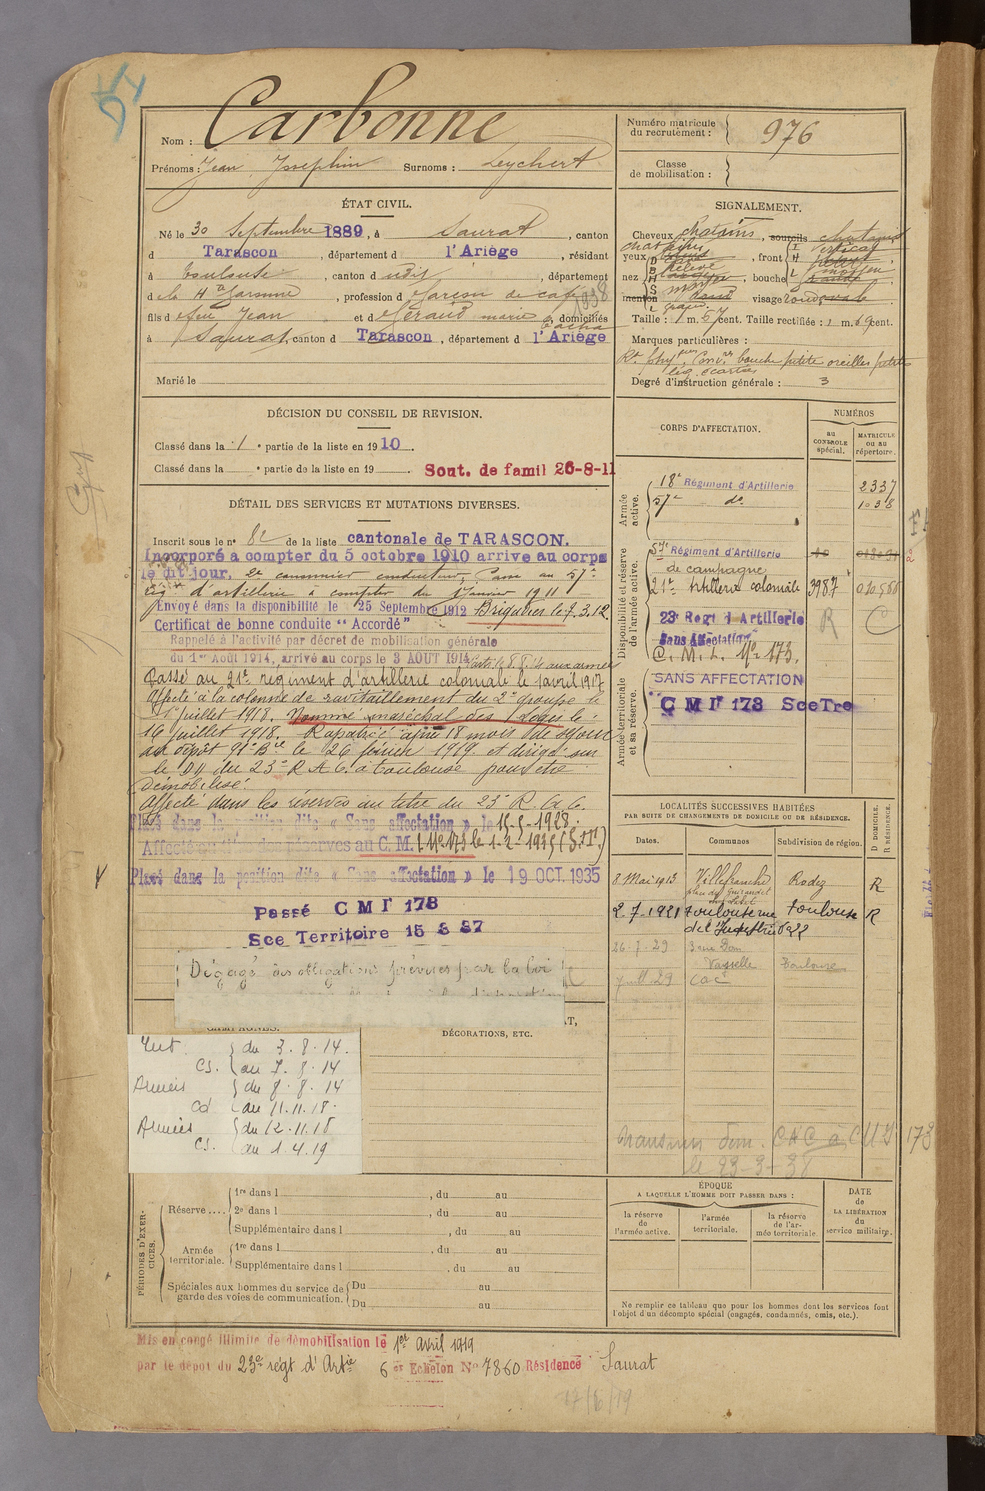 Nom : Carbonne
Prénoms : Jean Josephin Surnoms : Leychert
Numéro matricule du recrutement : 976
Classe de mobilisation :
ÉTAT CIVIL.
Né le 30 Septembre 1889, à Saurat, canton
d Tarascon, département d l'Ariège, résidant
à Toulouse, canton d udit, département
d e la Hte Garonne, profession d Garçon de café
fils d e feu Jean et d e Géraud marie, domiciliés
à Saurat, canton d Tarascon, département d l'Ariège
Marié le
SIGNALEMENT.
Cheveux chatains, sourcils chatains
yeux, front
nez, bouche
menton visage
Taille : 1 m. 57 cent. Taille rectifiée : 1 m. 69 cent.
Marques particulières :
bouche petite oreilles petites
leg. écartées
Degré d'instruction générale : 3
DÉCISION DU CONSEIL DE REVISION.
Classé dans la 1e partie de la liste en 1910.
Classé dans la e partie de la liste en 19 .
Sout. de famil 26-8-11
DÉTAIL DES SERVICES ET MUTATIONS DIVERSES.
Inscrit sous le n° 82 de la liste cantonale de TARASCON.
Incorporé a compter du 5 octobre 1910 arrive au corps
le dit jour, 2e canonnier conducteur, Passé au 57e
rég t d'artillerie à compter du 1 janvier 1911
Envoyé dans la disponibilité le 25 Septembre 1912 Brigadier le 7.3.12
Certificat de bonne conduite "Accordé"
Rappelé à l'activité par décret de mobilisation générale
du 1er Août 1914, arrivé au corps le 3 AOUT 1914 Parti le 8.8.14 aux armées
Passé au 21e régiment d'artillerie coloniale le 1 avril 1917
Affecté à la colonne de ravitaillement du 2e groupe le
1er juillet 1918. Nommé maréchal des Logis le
16 juillet 1918. Rapatrié après 18 mois de séjour
au dépôt 91e Bie le 26 février 1919 et dirigé sur
le DD du 23e R A C. à Toulouse pour être
Démobilisé.
Affecté dans les réserves au titre du 23e R. A. C.
Placé dans la position dite « Sans affectation » le 15-5-1928.
Affecté au titre des réserves au C. M. I No 173 le 1-2-1935 (S.T.)
Placé dans la position dite « Sans affectation » le 19 OCT. 1935
Passé CMI 173
Sce Territoire 15 3 37
Dégagé des obligations prévues par la loi
CORPS D'AFFECTATION.
NUMÉROS
au CONTROLE spécial.
MATRICULE OU AU répertoire.
Armée active.
18e Régiment d'Artillerie 2337
57e do 1038
Disponibilité et réserve de l'armée active.
57e Régiment d'Artillerie
de campagne
21e Artillerie coloniale 3987
23e Regt d'Artillerie R C
Sans Affectation
C. M. I. No 173.
Armée territoriale et sa réserve.
SANS AFFECTATION
CMI 173 Sce Tre
LOCALITÉS SUCCESSIVES HABITÉES
PAR SUITE DE CHANGEMENTS DE DOMICILE OU DE RÉSIDENCE.
Dates. Communes Subdivision de région. D DOMICILE. R RÉSIDENCE.
8 Mai 1913 Villefranche Rodez R
2-7-1921 Toulouse rue Toulouse R
de l'Industrie no 22
26.7.29 3 rue Dom
Vaysselle Toulouse
CAMPAGNES.
Int. du 3.8.14.
CS. au 7.8.14
Armées du 8.8.14
CD au 11.11.18.
Armées du 12.11.18
CS. au 1.4.19
DÉCORATIONS, ETC.
Transmis dom. CAC à CMI 173
le 23-3-38
PÉRIODES D'EXERCICES.
Réserve.... 1re dans l , du au
2e dans l , du au
Supplémentaire dans l , du au
Armée territoriale. 1re dans l , du au
Supplémentaire dans l , du au
Spéciales aux hommes du service de garde des voies de communication. Du au
Du au
ÉPOQUE
A LAQUELLE L'HOMME DOIT PASSER DANS :
la réserve de l'armée active.
l'armée territoriale.
la réserve de l'armée territoriale
DATE de LA LIBÉRATION du service militaire.
Ne remplir ce tableau que pour les hommes dont les services font
l'objet d'un décompte spécial (engagés, condamnés, omis, etc.).
Mis en congé illimité de démobilisation le 1er Avril 1919
par le dépot du 23e régt d'Artie 6e Echelon No 7860 Résidence Saurat
17/6/19